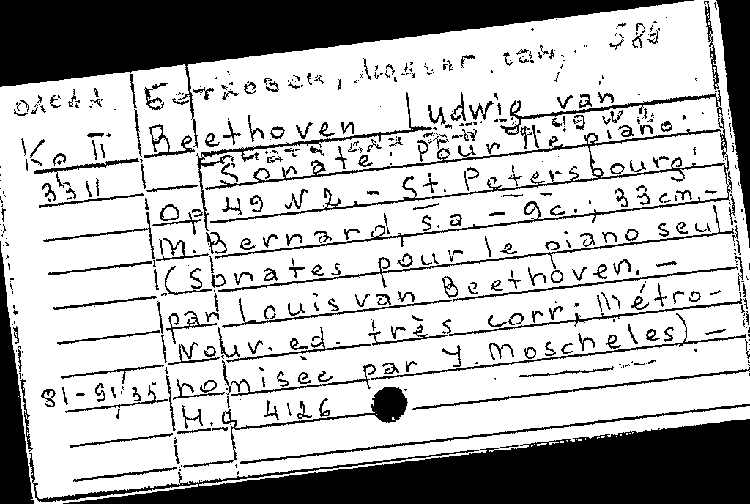 ОЛСАА Бетховен, Людвиг ван. 586
Ко II Beethoven Ludwig van
3311 Sonate: pour le piano:
Op 49 N 2. - St. Petersbourg:
M. Bernard, s.a. - 9c.; 33 cm. -
(Sonates pour le piano seul
par Louis van Beethoven. -
Nouv. ed. très corr; Métro-
81-91/35 nomisée par J. Moscheles) -
Н.д 4126